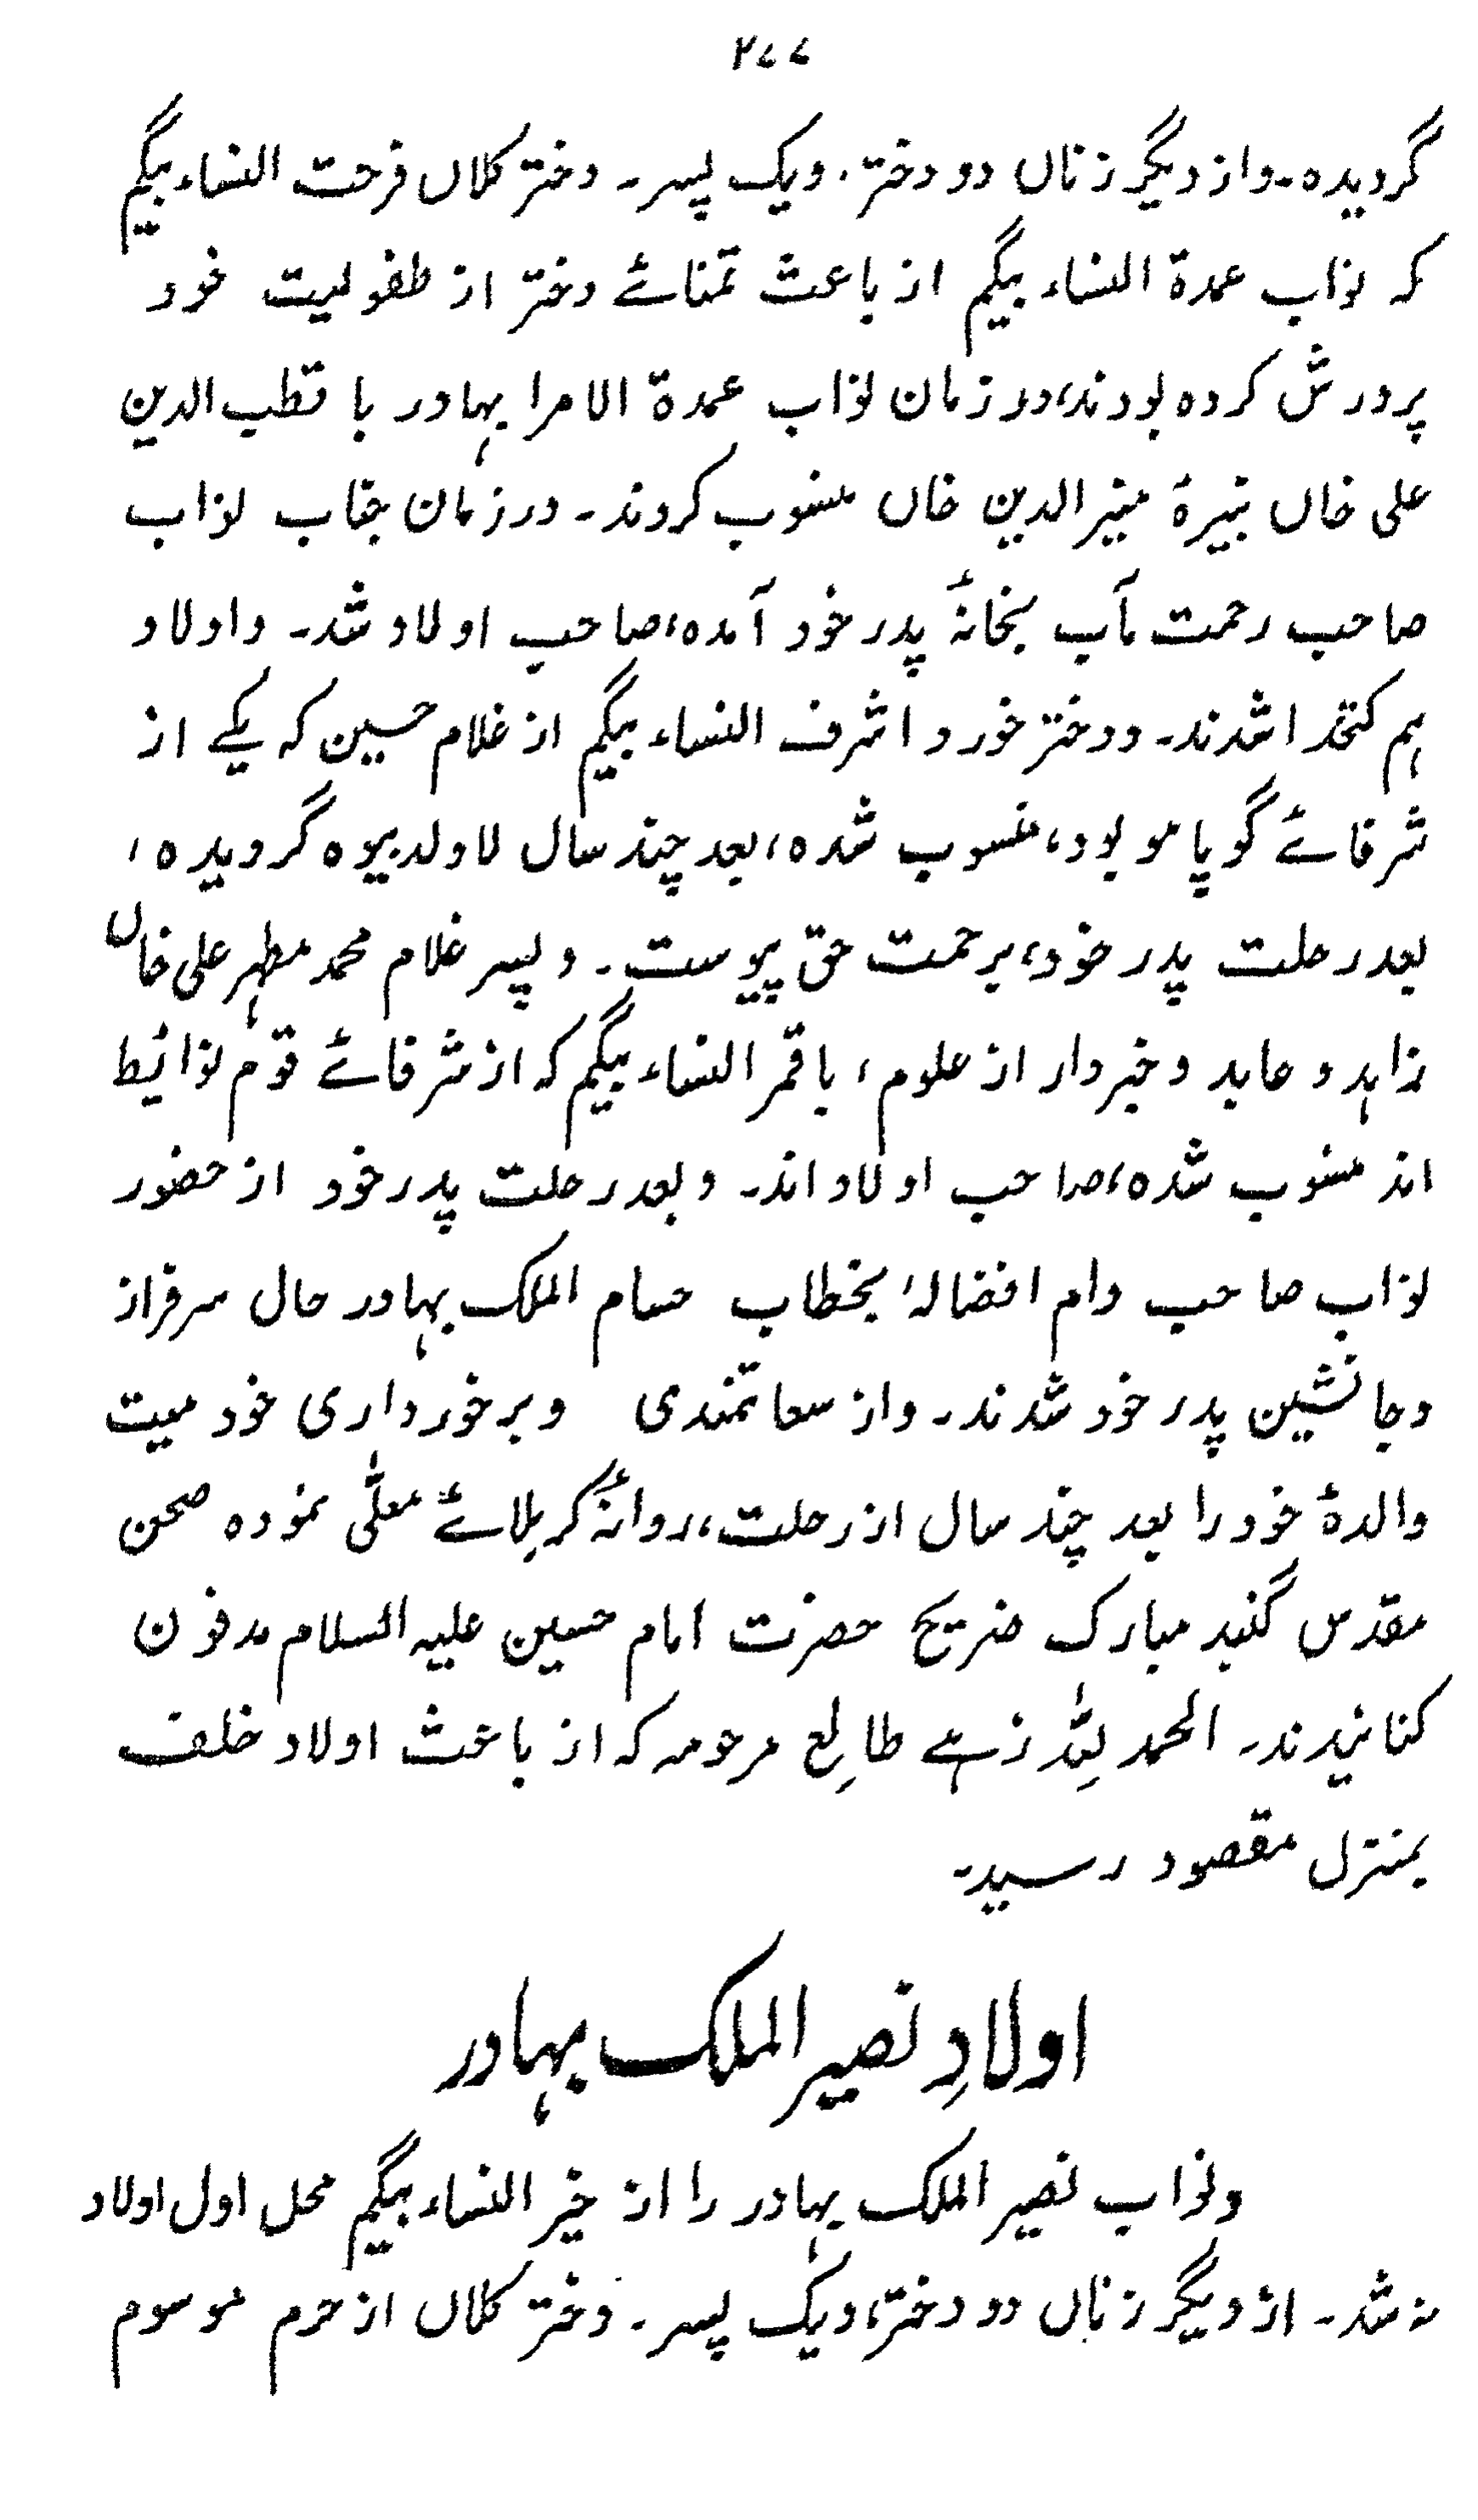 ۲۷۷
گردیدہ۔ واز دیگر زناں دو دختر، ویک پسر۔ دختر کلاں فرحت النساء بیگم
کہ نواب عمدۃ النساء بیگم از باعث تمنائے دختر از طفولیت خود
پرورش کردہ بودند، در زمان نواب عمدۃ الامرا بہادر با قطب الدین
علی خاں نبیرۂ منیر الدین خاں منسوب کردند۔ در زمان جناب نواب
صاحب رحمت مآب بخانۂ پدر خود آمدہ، صاحب اولاد شد۔ و اولاد
ہم کتخدا شدند۔ و دختر خورد اشرف النساء بیگم از غلام حسین کہ یکے از
شرفائے گوپامو بود، منسوب شدہ، بعد چند سال لاولد بیوہ گردیدہ،
بعد رحلت پدر خود، برحمت حق پیوست۔ و پسر غلام محمد مطہر علی خاں
زاہد و عابد و خبردار از علوم، با قمر النساء بیگم کہ از شرفائے قوم نوائیط
اند منسوب شدہ، صاحب اولاد اند۔ و بعد رحلت پدر خود از حضور
نواب صاحب دام افضالہٗ بخطاب حسام الملک بہادر حال سرفراز
و جانشین پدر خود شدند۔ و از سعاتمندی و برخورداری خود میت
والدۂ خود را بعد چند سال از رحلت، روانۂ کربلائے معلّٰی نمودہ صحن
مقدس گنبد مبارک ضریح حضرت امام حسین علیہ السلام مدفون
کنانیدند۔ الحمد للہ زہے طالِع مرحومہ کہ از باعث اولاد خلف
بمنزل مقصود رسید۔
اولادِ نصیر الملک بہادر
و نواب نصیر الملک بہادر را از خیر النساء بیگم محل اول اولاد
نہ شد۔ از دیگر زناں دو دختر، ویک پسر۔ دختر کلاں از حرم موسوم